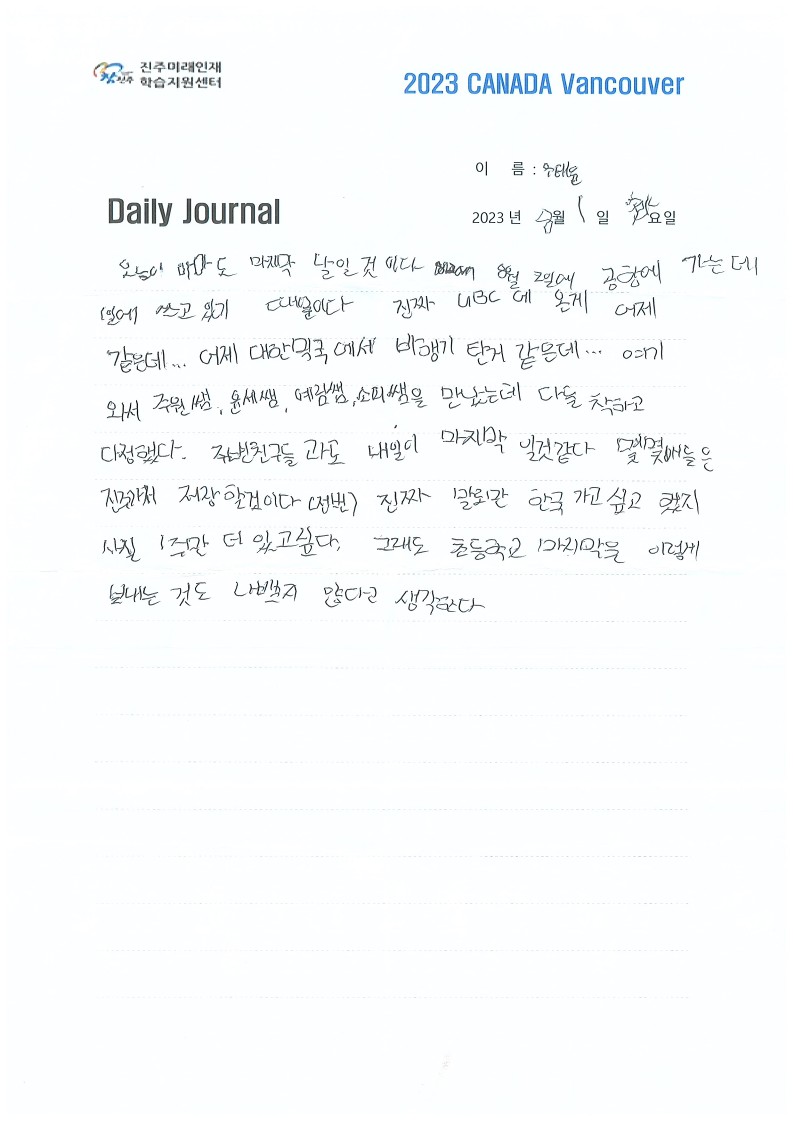 진주미래인재
학습지원센터
2023 CANADA Vancouver
이 름 :
Daily Journal
2023 년 월 1 일 화요일
오늘이 아마도 마지막 날일것 이다 8월 2일에 공항에 가는데
1일에 쓰고 있기 때문이다 진짜 UBC 에 온게 어제
같은데... 어제 대한민국 에서 비행기 탄거 같은데... 여기
와서 주원쌤, 윤세쌤, 예림쌤, 소피쌤을 만났는데 다들 착하고
다정했다. 주변친구들 과도 내일이 마지막 일것같다 몇몇애들은
저장 할것이다 (전번) 진짜 말로만 한국 가고 싶고 했지
사실 1주만 더 있고싶다. 그래도 초등학교 마지막을 이렇게
보내는 것도 나쁘지 않다고 생각한다